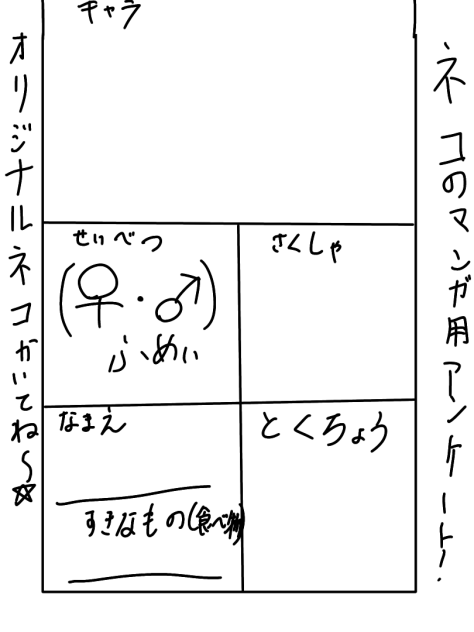 ネコのマンガ用アンケート!
キャラ
せいべつ
(♀・♂)
ふめい
さくしゃ
なまえ
すきなもの(食べ物)
とくちょう
オリジナルネコかいてね～☆